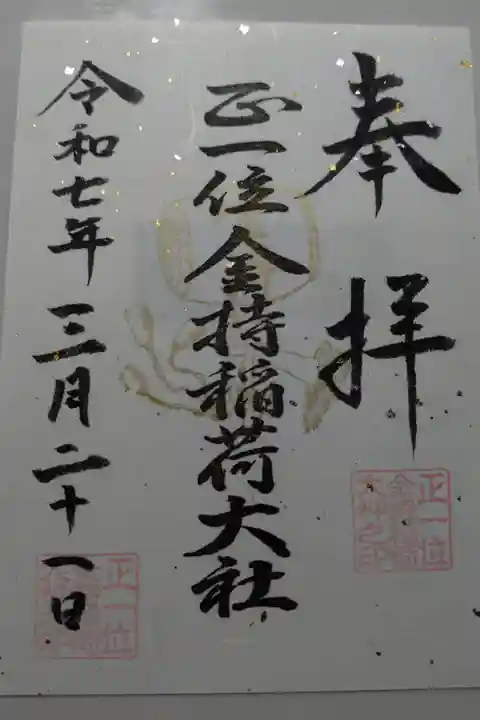 奉拝
正一位金持稲荷大社
令和七年三月二十一日
正一位
正一位